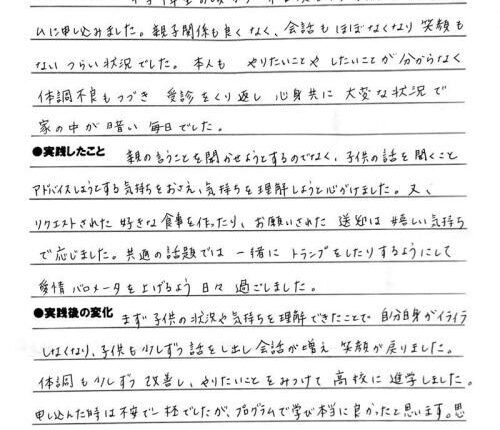 いに申し込みました。親子関係も良くなく、会話もほぼなくなり笑顔も
ないつらい状況でした。本人も やりたいことや したいことが分からなく
体調不良もつづき 受診をくり返し 心身共に 大変な状況で
家の中が暗い 毎日でした。
●実践したこと 親の言うことを聞かせようとするのでなく、子供の話を聞くこと
アドバイスしようとする気持ちをおさえ、気持ちを理解しようと心がけました。又、
リクエストされた 好きな食事を作ったり、お願いされた 送迎は 嬉しい気持ち
で応じました。共通の話題では 一緒に トランプをしたりするようにして
愛情 バロメータを上げるよう 日々 過ごしました。
●実践後の変化 まず 子供の状況や気持ちを理解できたことで 自分自身がイライラ
しなくなり、子供も少しずつ 話をし出し 会話が増え 笑顔が戻りました。
体調も少しずつ 改善し、やりたいことをみつけて 高校に進学しました。
申し込んだ時は不安で一杯でしたが、プログラムで学び本当に良かったと思います。思